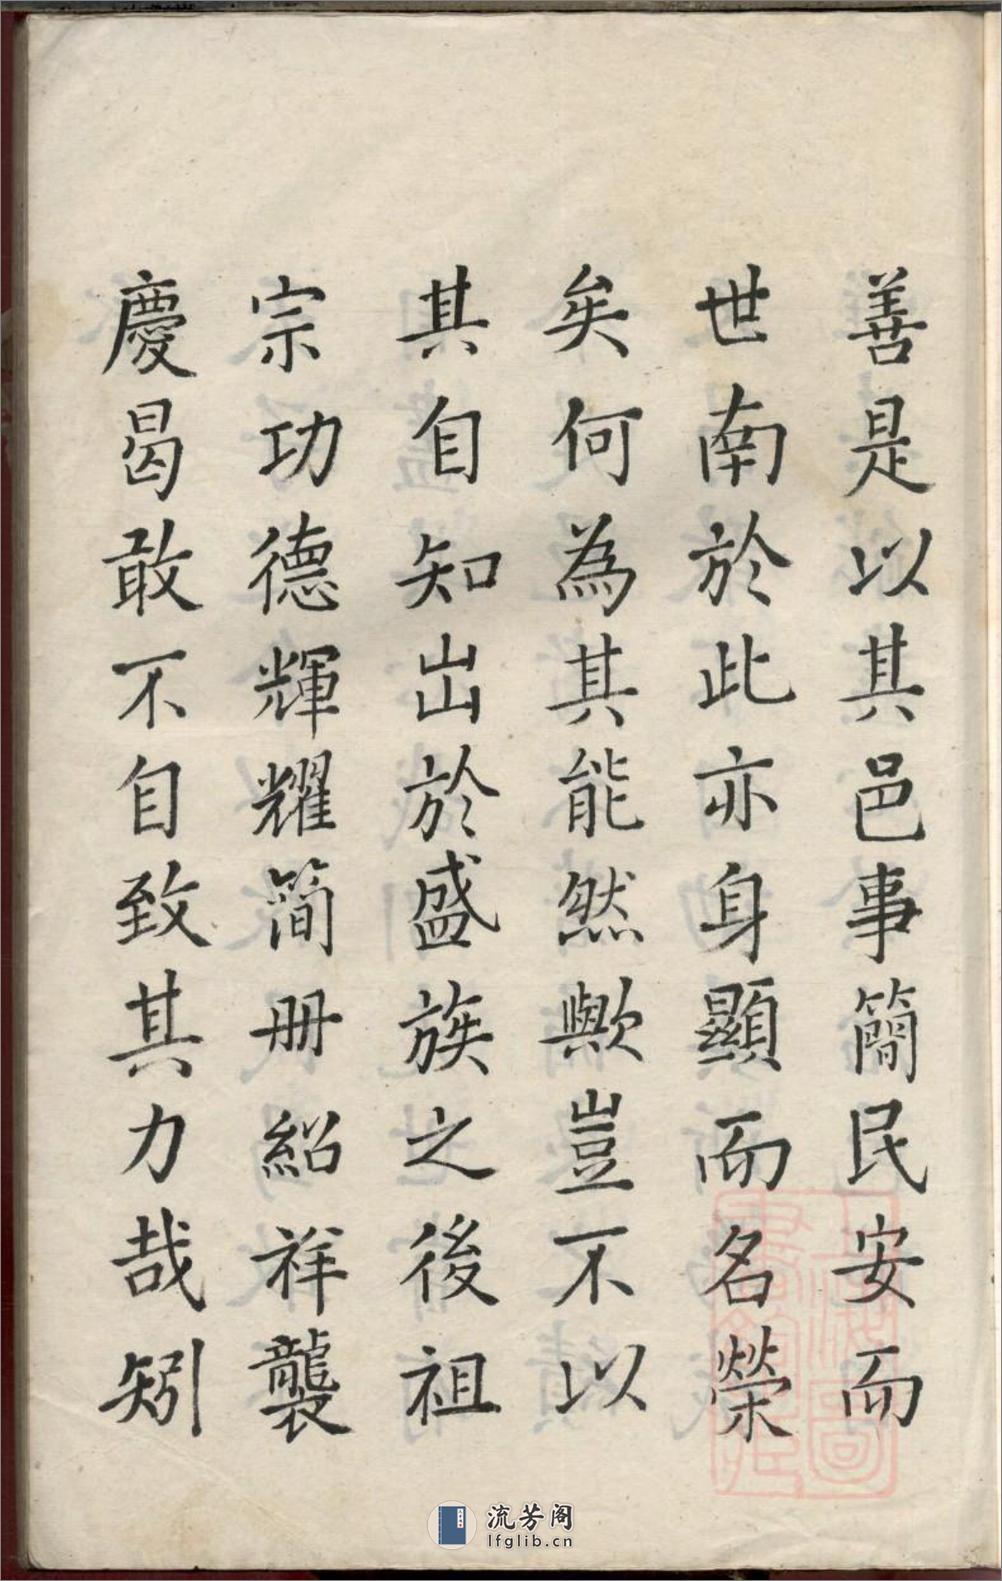 善是以其邑事簡民安而
世南於此亦身顯而名榮
矣何為其能然歟豈不以
其自知出於盛族之後祖
宗功德輝耀簡冊紹祥襲
慶曷敢不自致其力哉矧
流芳阁
lfglib.cn